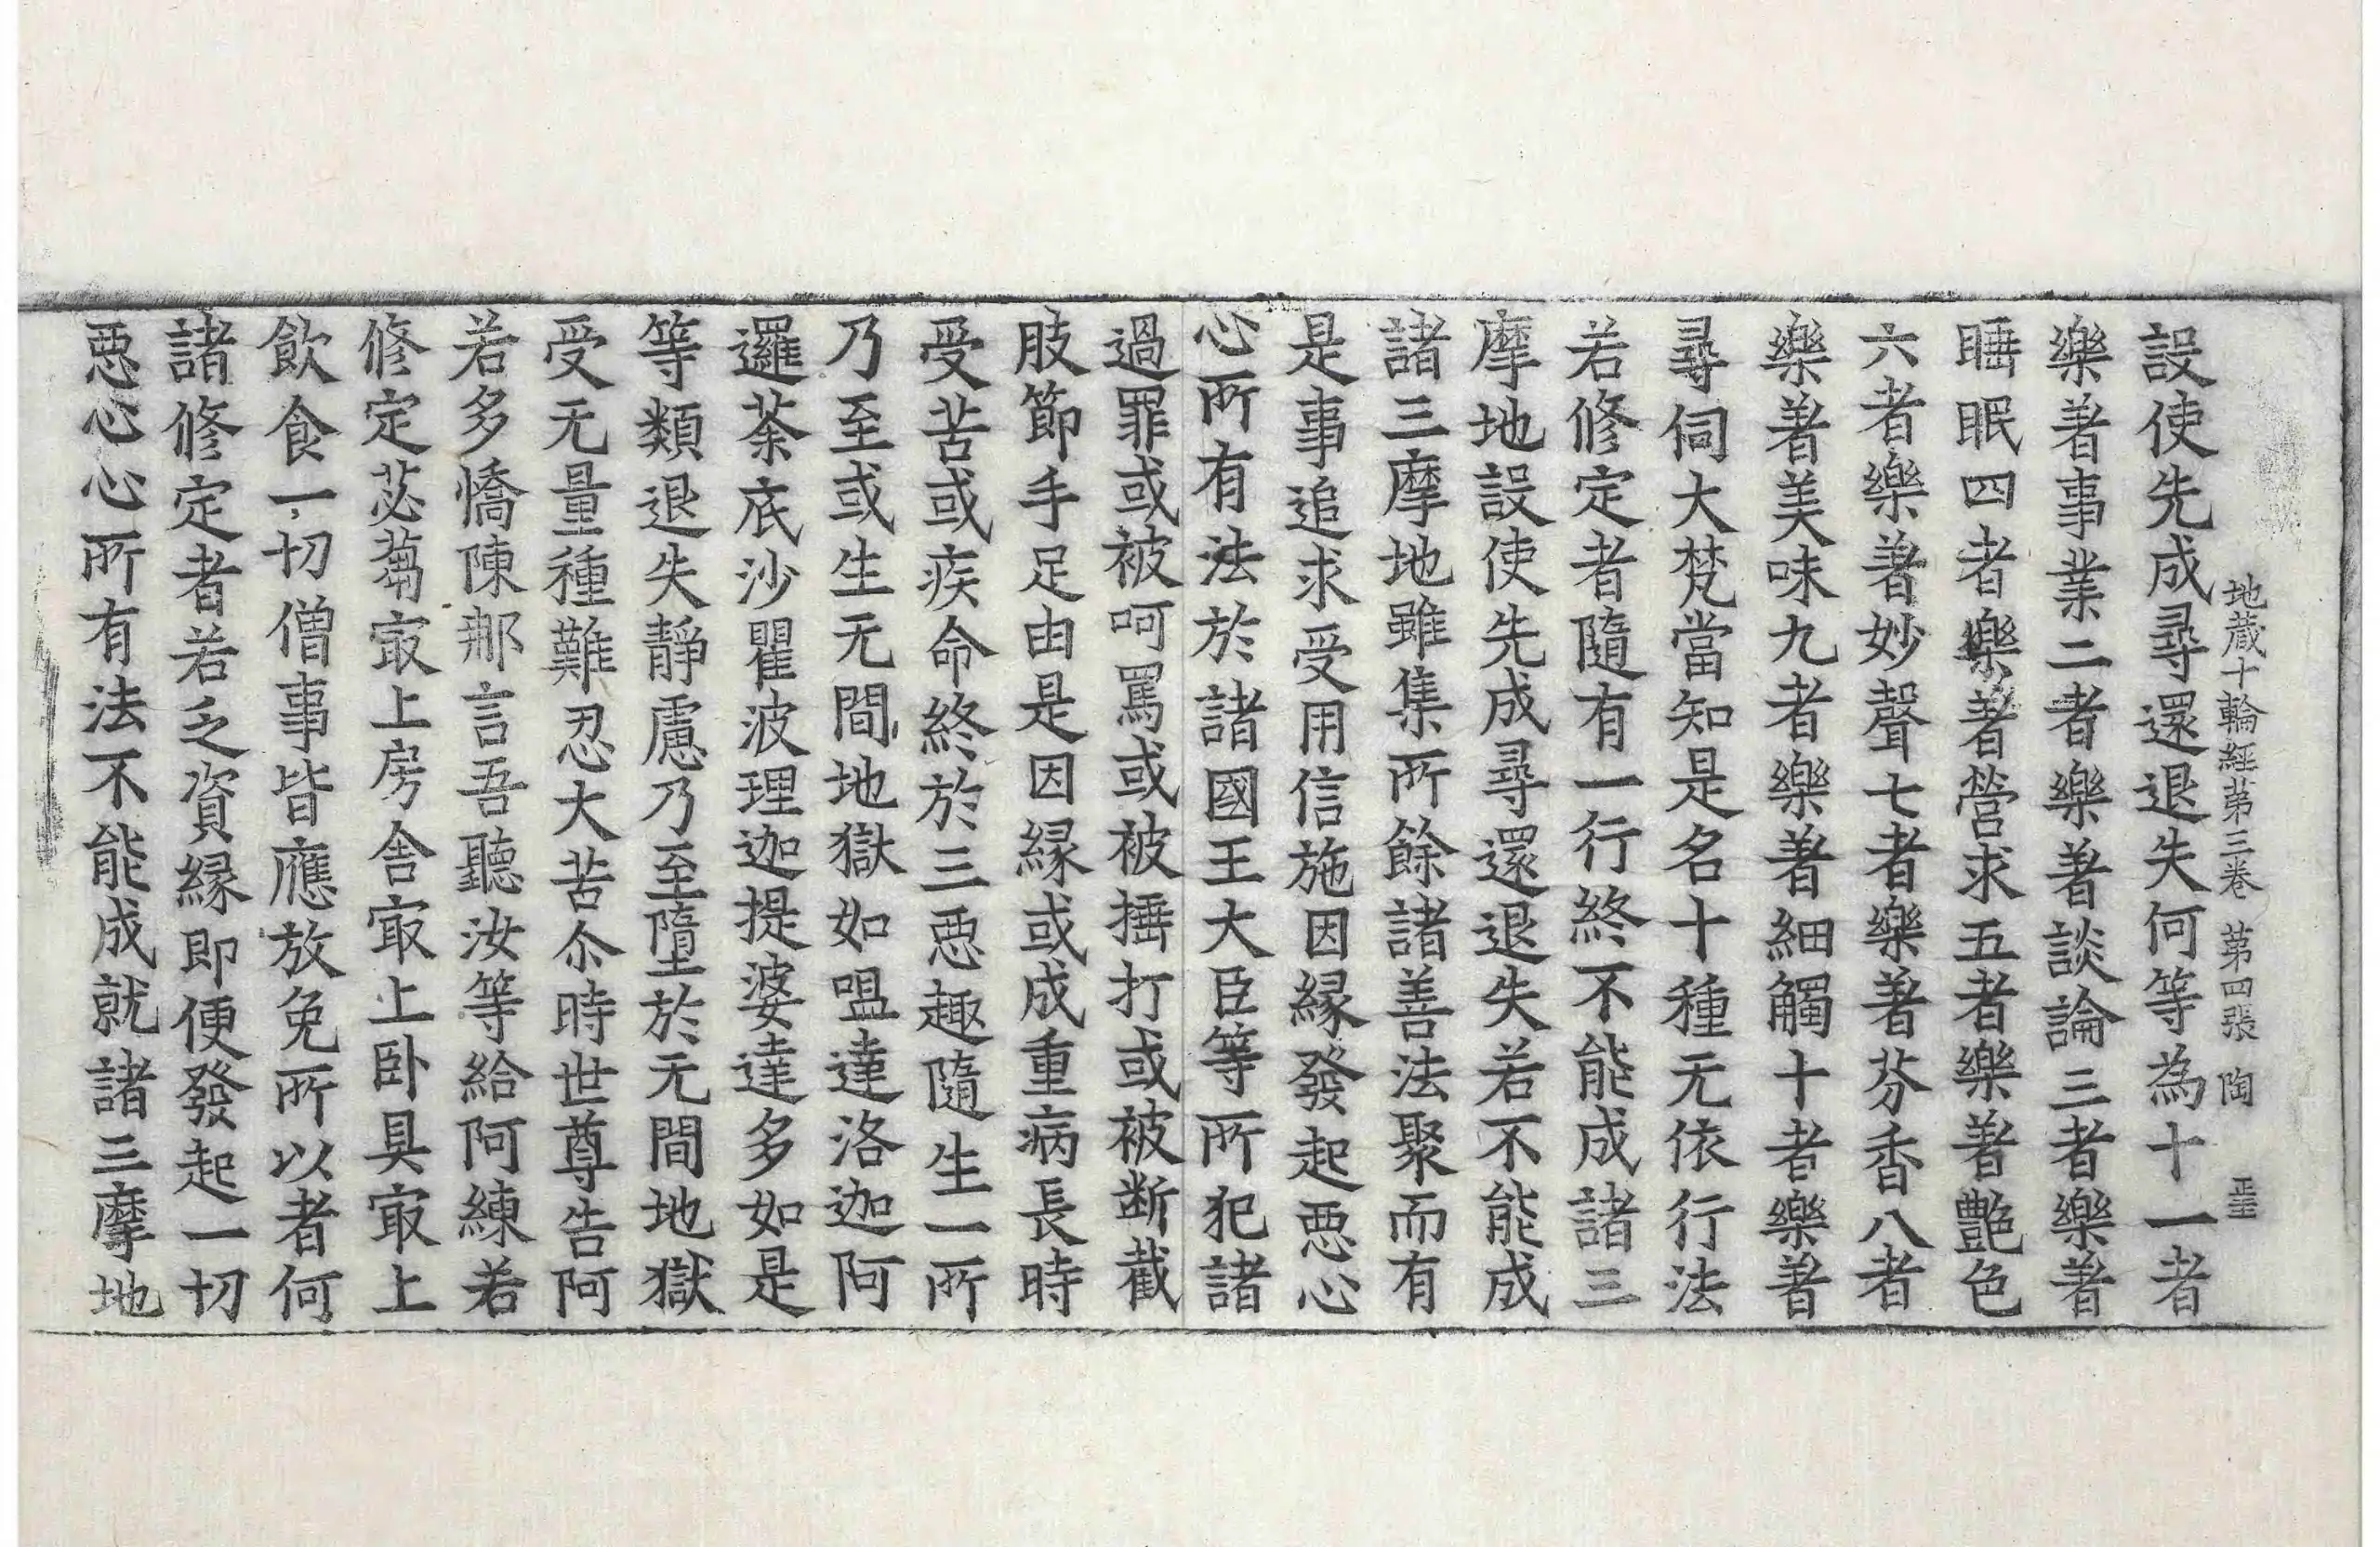 地蔵十輪經苐三巻 苐四張 陶
設使先成尋還退失何等為十一者
樂著事業二者樂著談論三者樂著
睡眠四者樂著營求五者樂著艶色
六者樂著妙聲七者樂著芬香八者
樂著美味九者樂著細觸十者樂著
尋伺大梵當知是名十種无依行法
若修定者隨有一行終不能成諸三
摩地設使先成尋還退失若不能成
諸三摩地雖集所餘諸善法聚而有
是事追求受用信施因緣發起惡心
心所有法於諸國王大臣等所犯諸
過罪或被呵罵或被捶打或被斷截
肢節手足由是因緣或成重病長時
受苦或疾命終於三惡趣隨生一所
乃至或生无間地獄如嗢達洛迦阿
邏荼底沙瞿波理迦提婆達多如是
等類退失靜慮乃至墮於无間地獄
受无量種難忍大苦尒時世尊告阿
若多憍陳那言吾聽汝等給阿練若
修定苾蒭㝡上房舍㝡上卧具㝡上
飲食一切僧事皆應放免所以者何
諸修定者若乏資緣即便發起一切
惡心心所有法不能成就諸三摩地